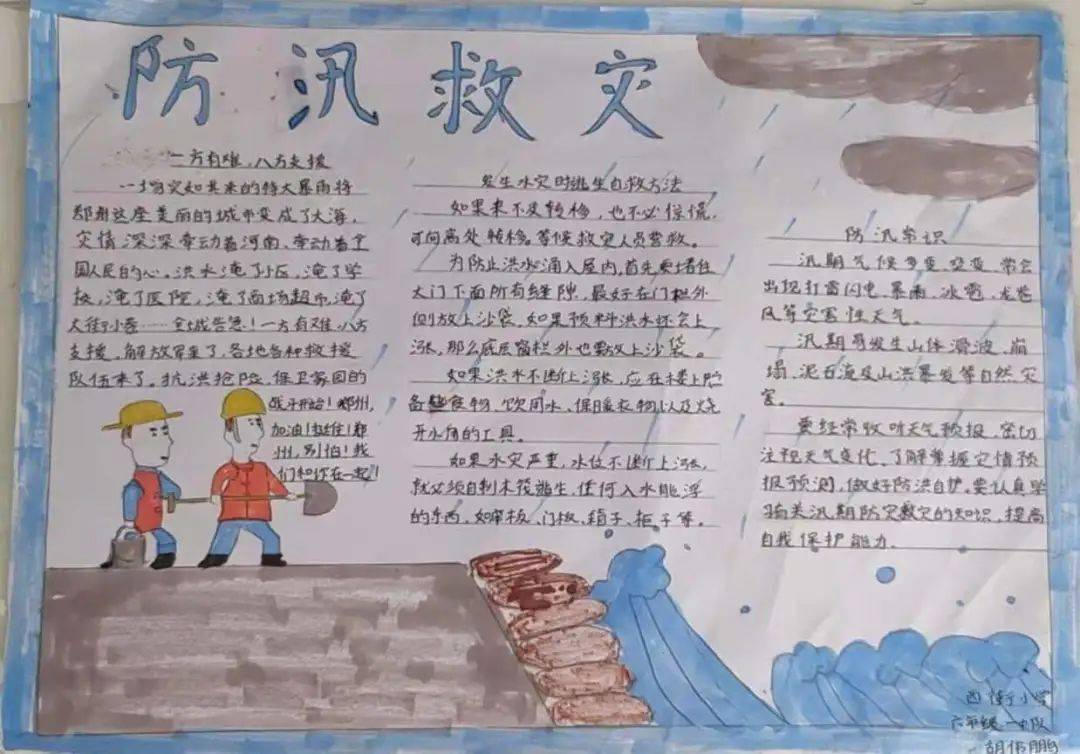 防汛救灾
一方有难，八方支援
一场突如其来的特大暴雨将
郑州这座美丽的城市变成了大海，
灾情深深牵动着河南、牵动着全
国人民的心。洪水淹了小区，淹了学
校，淹了医院，淹了商场超市，淹了
大街小巷……全城告急！一方有难，八方
支援。解放军来了，各地各种救援
队伍来了。抗洪抢险，保卫家园的
战斗开始！郑州，
加油！挺住！郑
州，别怕！我
们和你在一起！
发生水灾时逃生自救方法
如果来不及转移，也不必惊慌，
可向高处转移。等候救灾人员营救。
为防止洪水涌入屋内，首先要堵住
大门下面所有缝隙，最好在门槛外
侧放上沙袋，如果预料洪水还会上
涨，那么底层窗槛外也要放上沙袋。
如果洪水不断上涨，应在楼上贮
备些食物、饮用水、保暖衣物以及烧
开水用的工具。
如果水灾严重，水位不断上涨，
就必须自制木筏逃生，任何入水能浮
的东西，如床板、门板、箱子、柜子等。
防汛常识
汛期气候多变、突变，常会
出现打雷闪电、暴雨、冰雹、龙卷
风等灾害性天气。
汛期易发生山体滑波、崩
塌、泥石流及山洪暴发等自然灾
害。
要经常收听天气预报，密切
注视天气变化、了解掌握灾情预
报预测，做好防洪自护。要认真学
习有关汛期防灾救灾的知识，提高
自我保护能力。
西街小学
六年级一中队
胡伟鹏